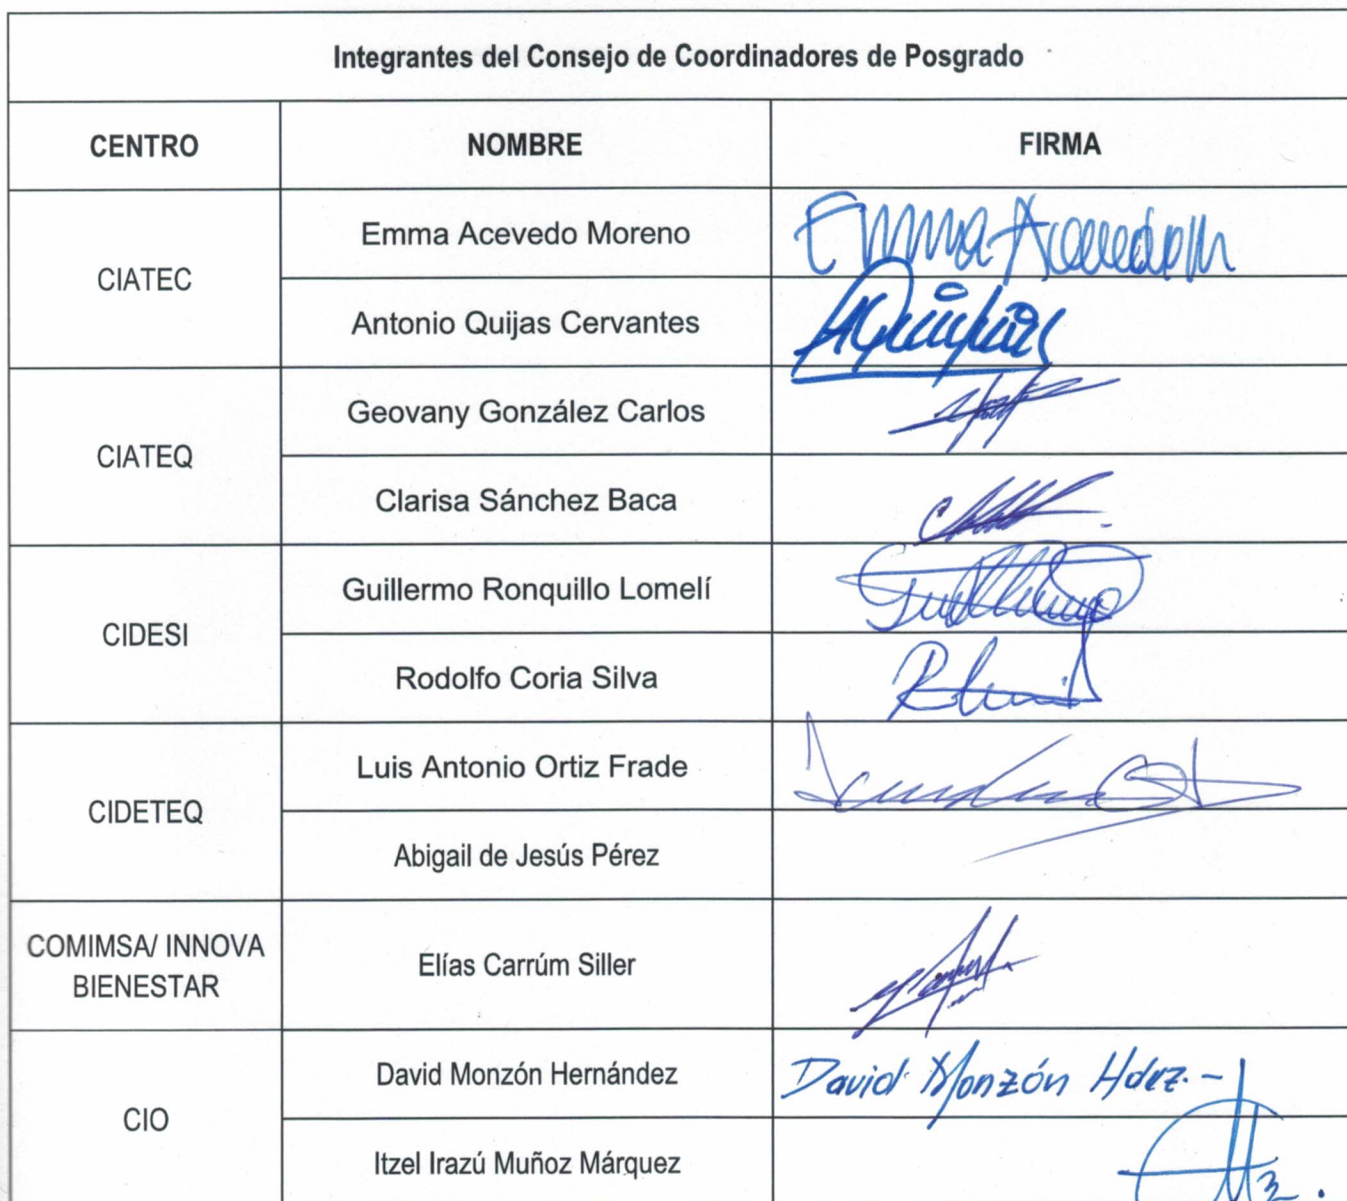 Integrantes del Consejo de Coordinadores de Posgrado
CENTRO NOMBRE FIRMA
CIATEC
Emma Acevedo Moreno Emma Acevedo M
Antonio Quijas Cervantes AQuijas
CIATEQ
Geovany González Carlos
Clarisa Sánchez Baca
CIDESI
Guillermo Ronquillo Lomelí Guillermo
Rodolfo Coria Silva
CIDETEQ
Luis Antonio Ortiz Frade
Abigail de Jesús Pérez
COMIMSA/ INNOVA
BIENESTAR
Elías Carrúm Siller
CIO
David Monzón Hernández David Monzón Hdez.-
Itzel Irazú Muñoz Márquez